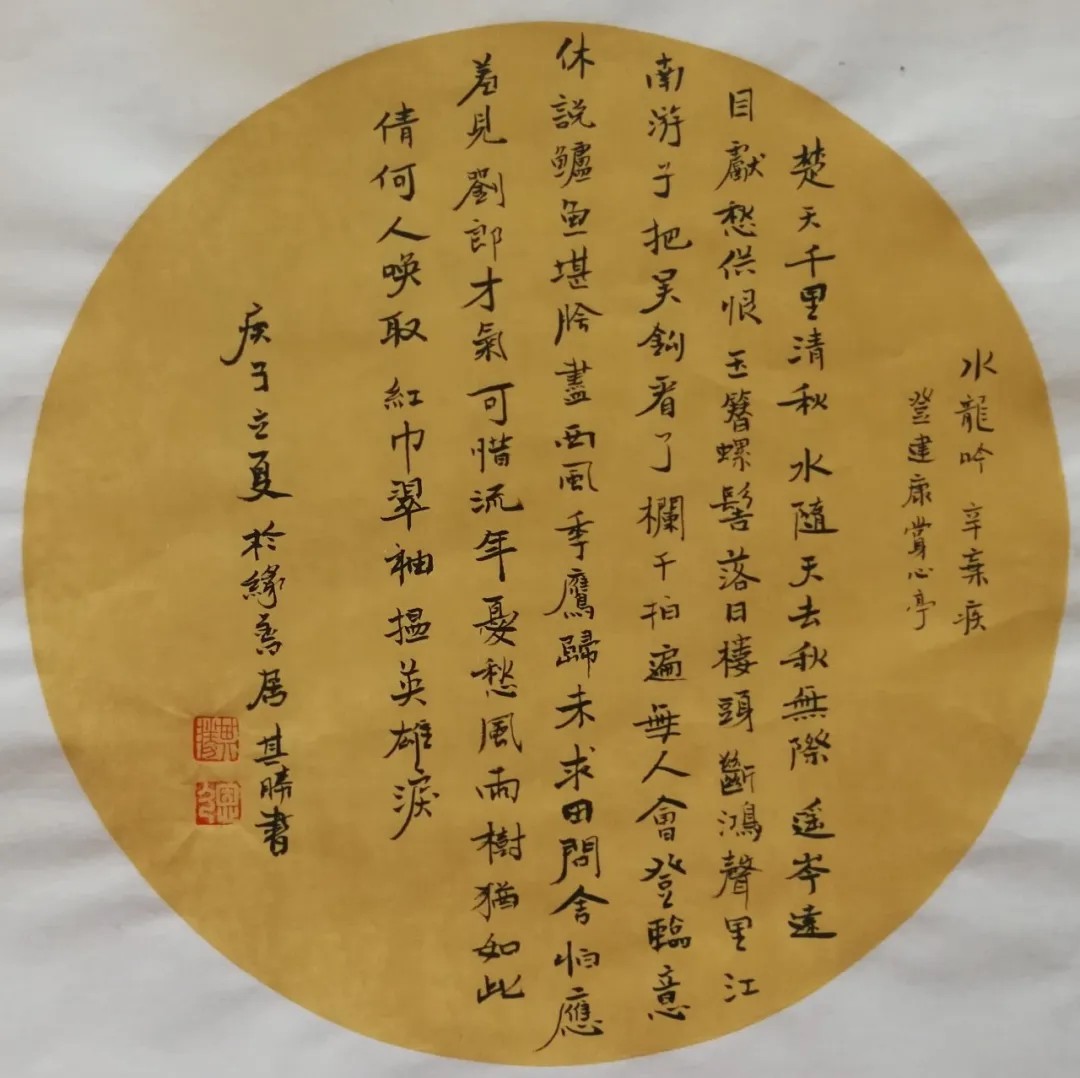 水龍吟 辛棄疾
登建康賞心亭
楚天千里清秋 水隨天去秋無際 遥岑遠
目獻愁供恨 玉簪螺髻落日樓頭 斷鴻聲里江
南游子把吴鉤看了欄干拍遍無人會登臨意
休説鱸魚堪膾盡西風季鷹歸未求田問舍怕應
羞見劉郎才氣可惜流年憂愁風雨樹猶如此
倩何人唤取 紅巾翠袖揾英雄淚
庚子立夏 於緣善居 其書